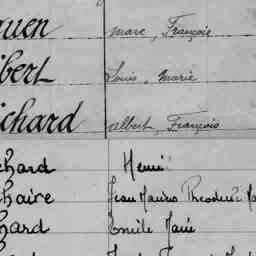 guen Marc, François
bert Louis, Marie
chard Albert, François
chard Henri
chaire Jean Marie Théodore
hard Emile Marie